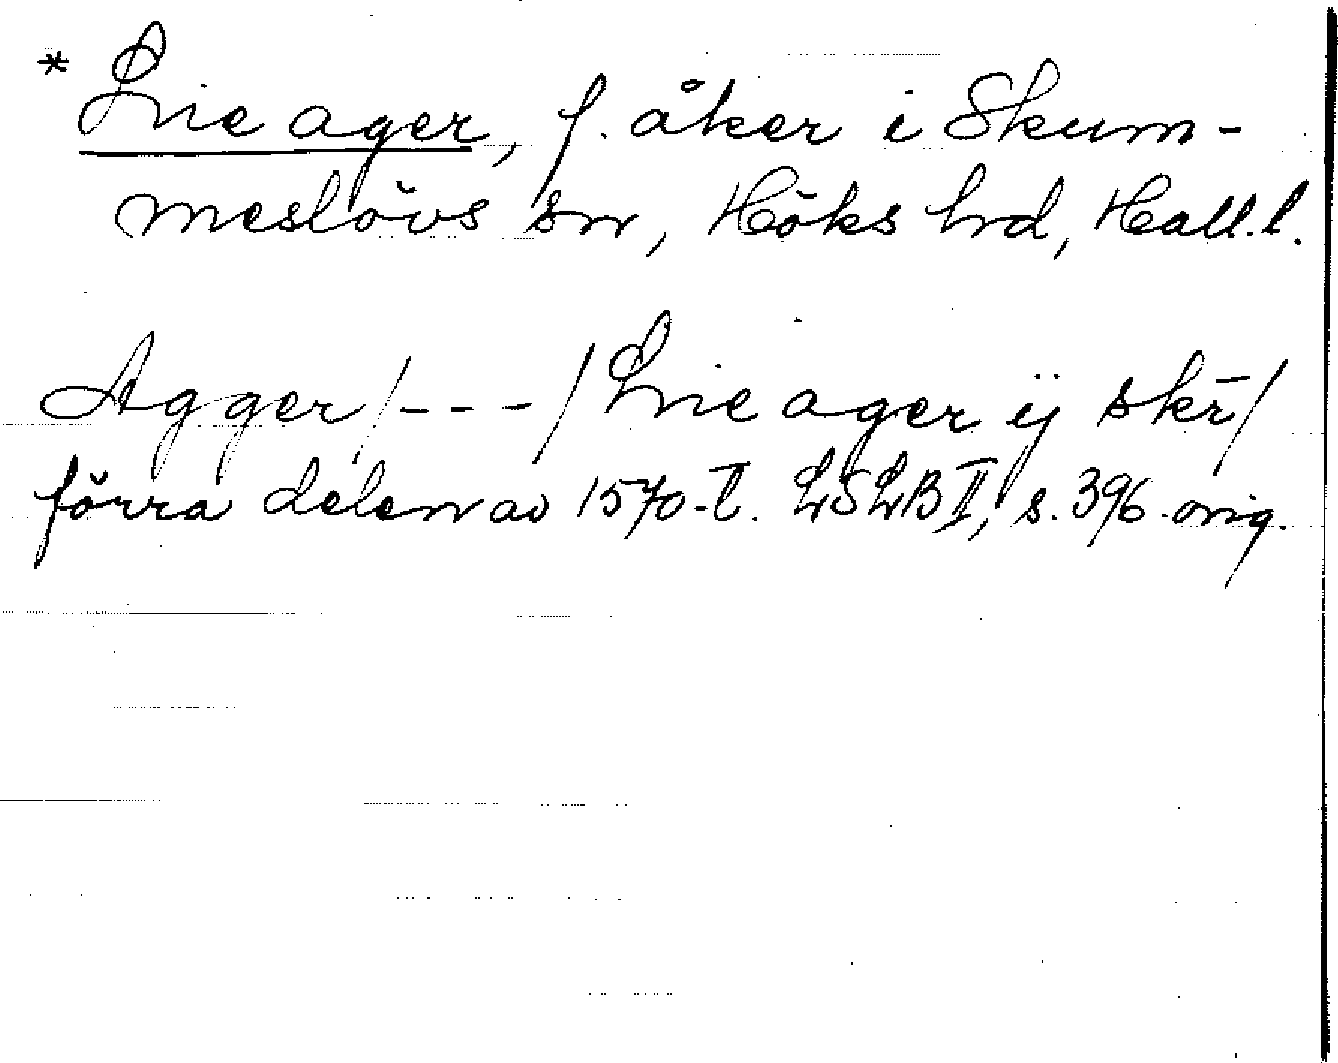 * Lvie ager, f. åker i Skum-
meslövs sn, Höks hrd, Hall. l.
Agger /---/ Lvie ager ÿ skr̄/
förra delen av 1570-t. LSLB II, s. 396. orig.